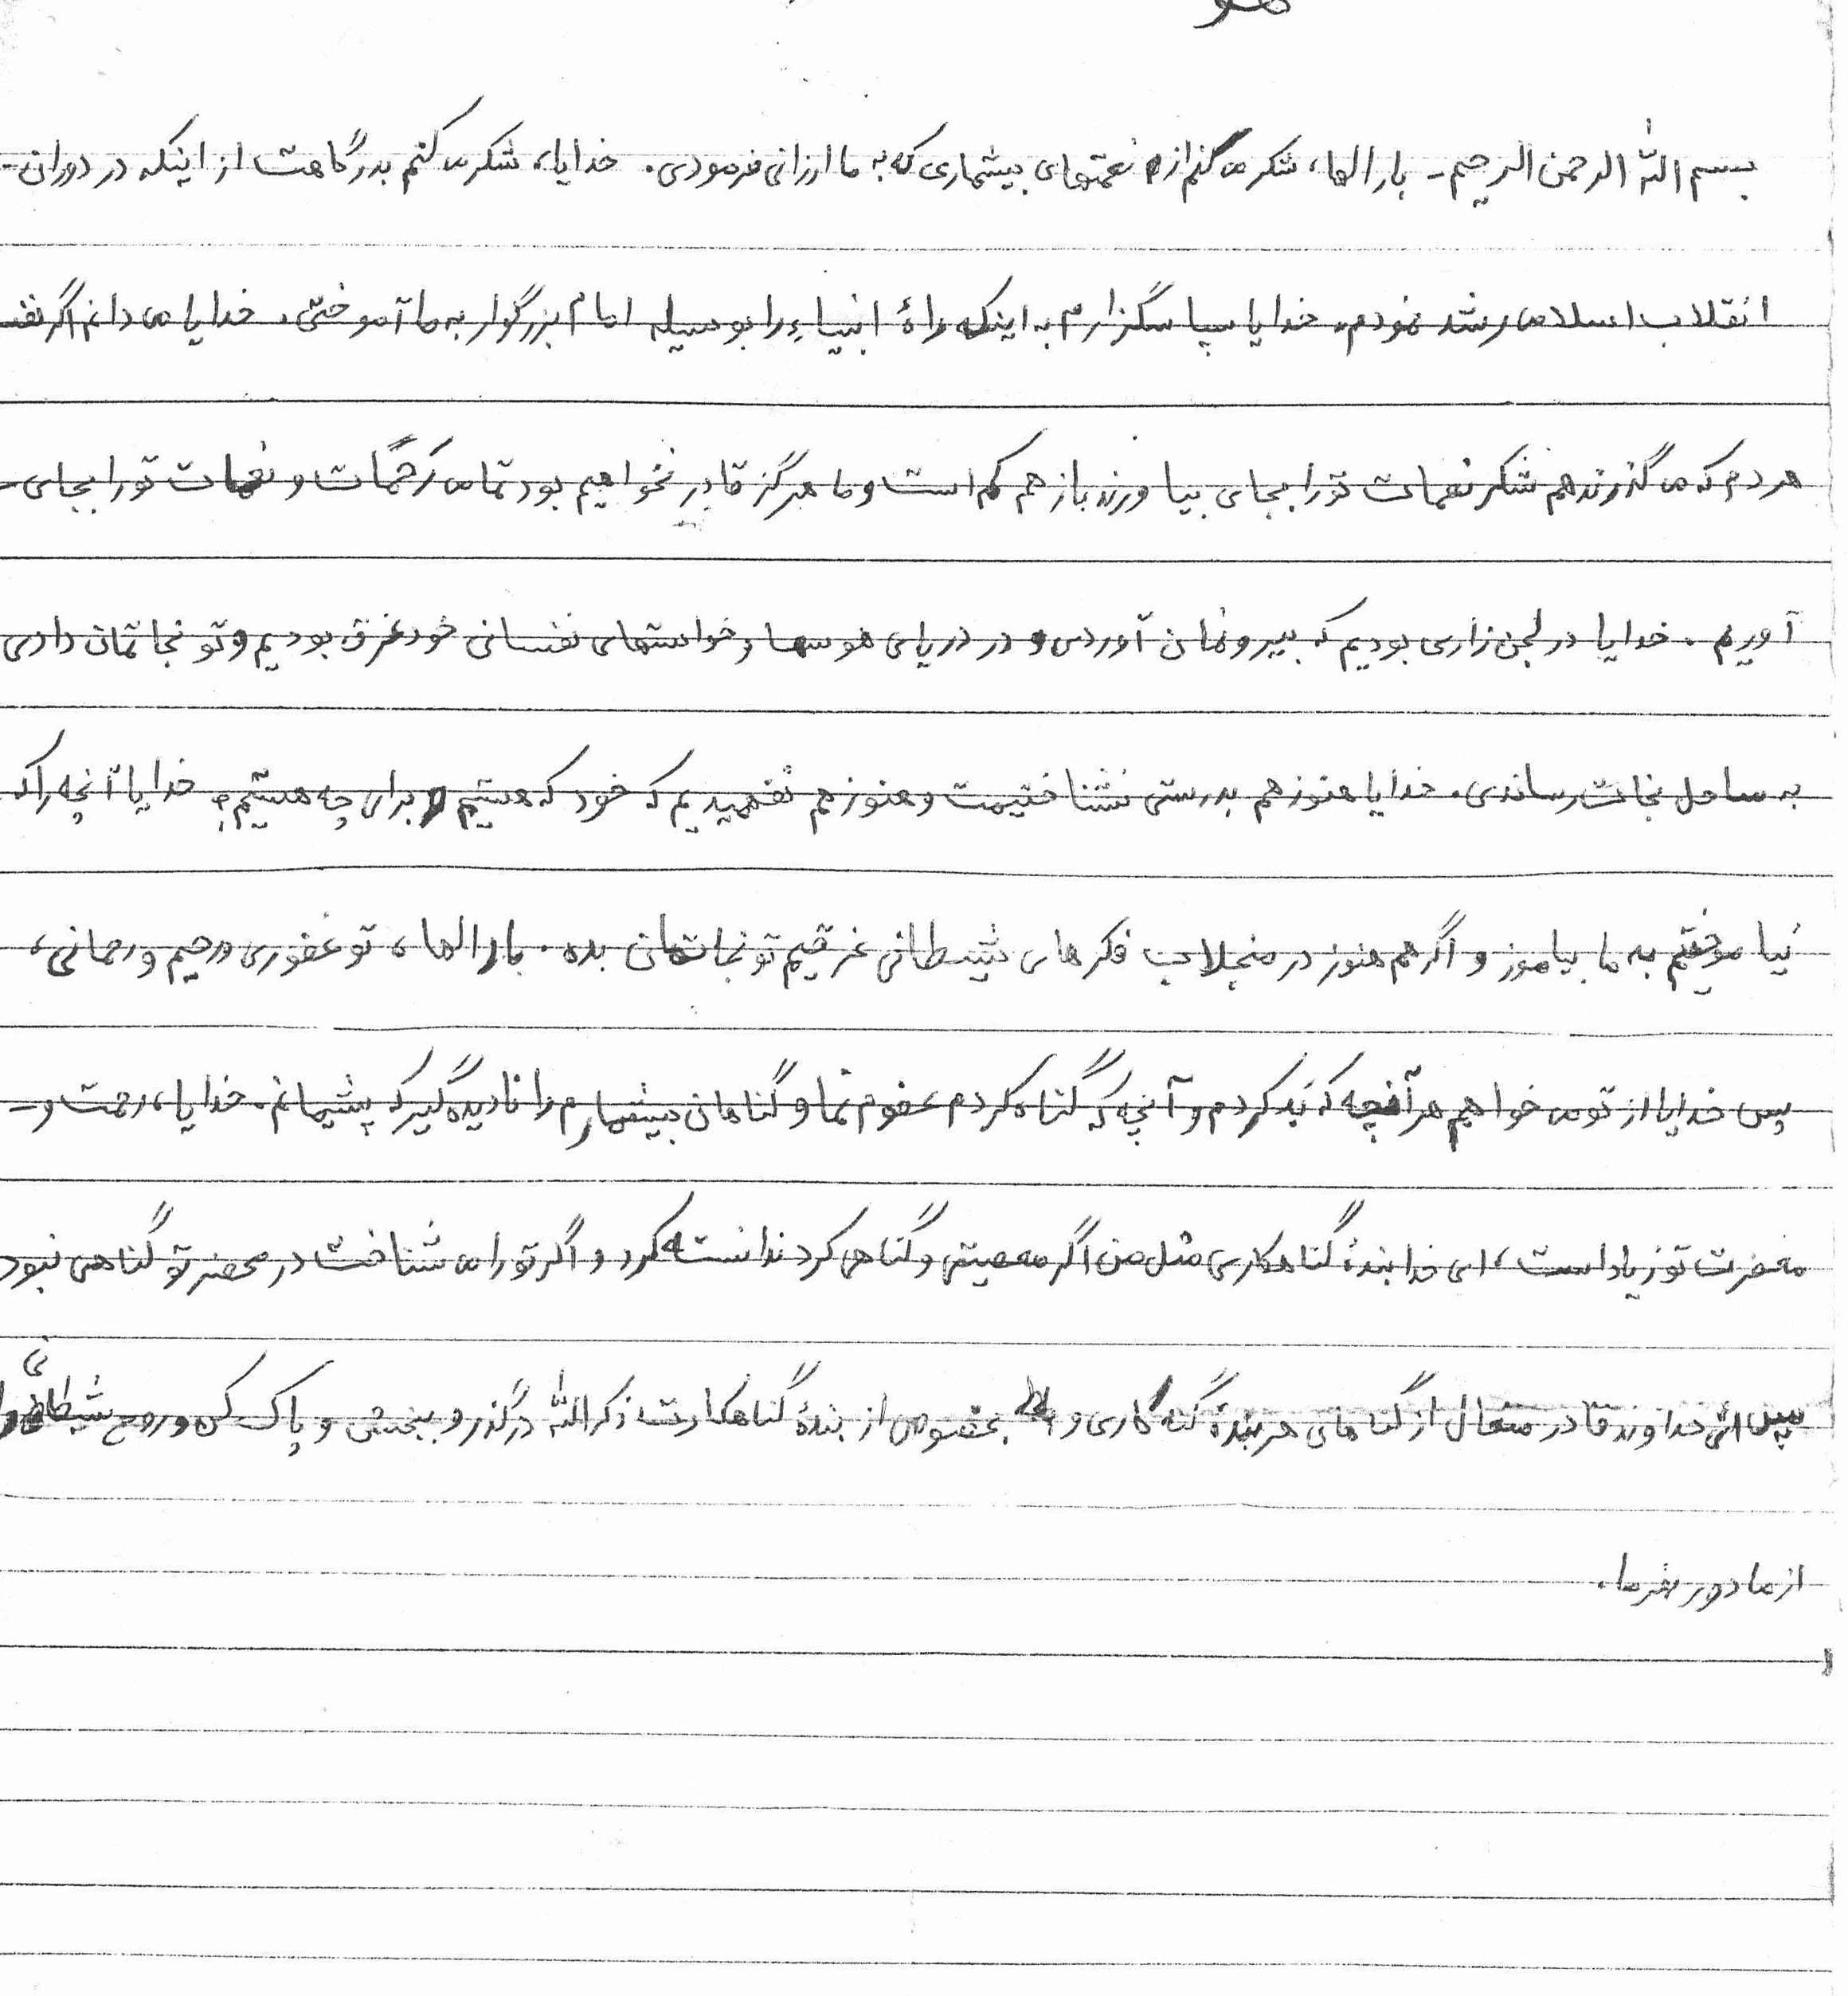 هو
بسم الله الرحمن الرحیم - بار الها، شکر می کنم از نعمتهای بیشماری که به ما ارزانی فرمودی. خدایا، شکر می کنم بدرگاهت از اینکه در دوران-
انقلاب اسلامی رشد نمودم. خدایا سپاسگزارم به اینکه راهٔ انبیاء را بوسیله امام بزرگوار به ما آموختی. خدایا می دانم اگر نفـ
هر دم که می گذرند هم شکر نعمات تو را بجای بیاورند باز هم کم است و ما هرگز قادر نخواهیم بود تمامی رَحَمات و نعمات تو را بجای-
آوریم. خدایا در لجن زاری بودیم که بیرونمان آوردی و در دریای هوسها و خواستهای نفسانی خود غرق بودیم و تو نجاتمان دادی
به ساحل نجات رساندی. خدایا هنوز هم بدرستی نشناختیمت و هنوز هم نفهمیدیم که خود که هستیم و برای چه هستیم؟ خدایا آنچه را که
نیاموختیم به ما بیاموز و اگر هم هنوز در منجلاب فکرهای شیطانی غرقیم تو نجاتمان بده. بار الها، تو غفوری و رحیم و رحمانی،
پس خدایا از تو می خواهم هر آنچه که بَد کردم و آنچه که گناه کردم عفوم نما و گناهان بیشمارم را نادیده گیر که پشیمانم. خدایا، رحمت و-
مغفرت تو زیاد است، ای خدا بندهٔ گناهکاری مثل من اگر معصیتی و گناهی کرد ندانسته کرد و اگر تو را می شناخت در محضر تو گناهی نبود
پس ای خداوند قادر متعال از گناهای هر بندهٔ گنه کاری و بخصوص از بندهٔ گناهکارت ذکرالله درگذر و ببخش و پاک کن و روح شیطانی را
از ما دور بفرما.